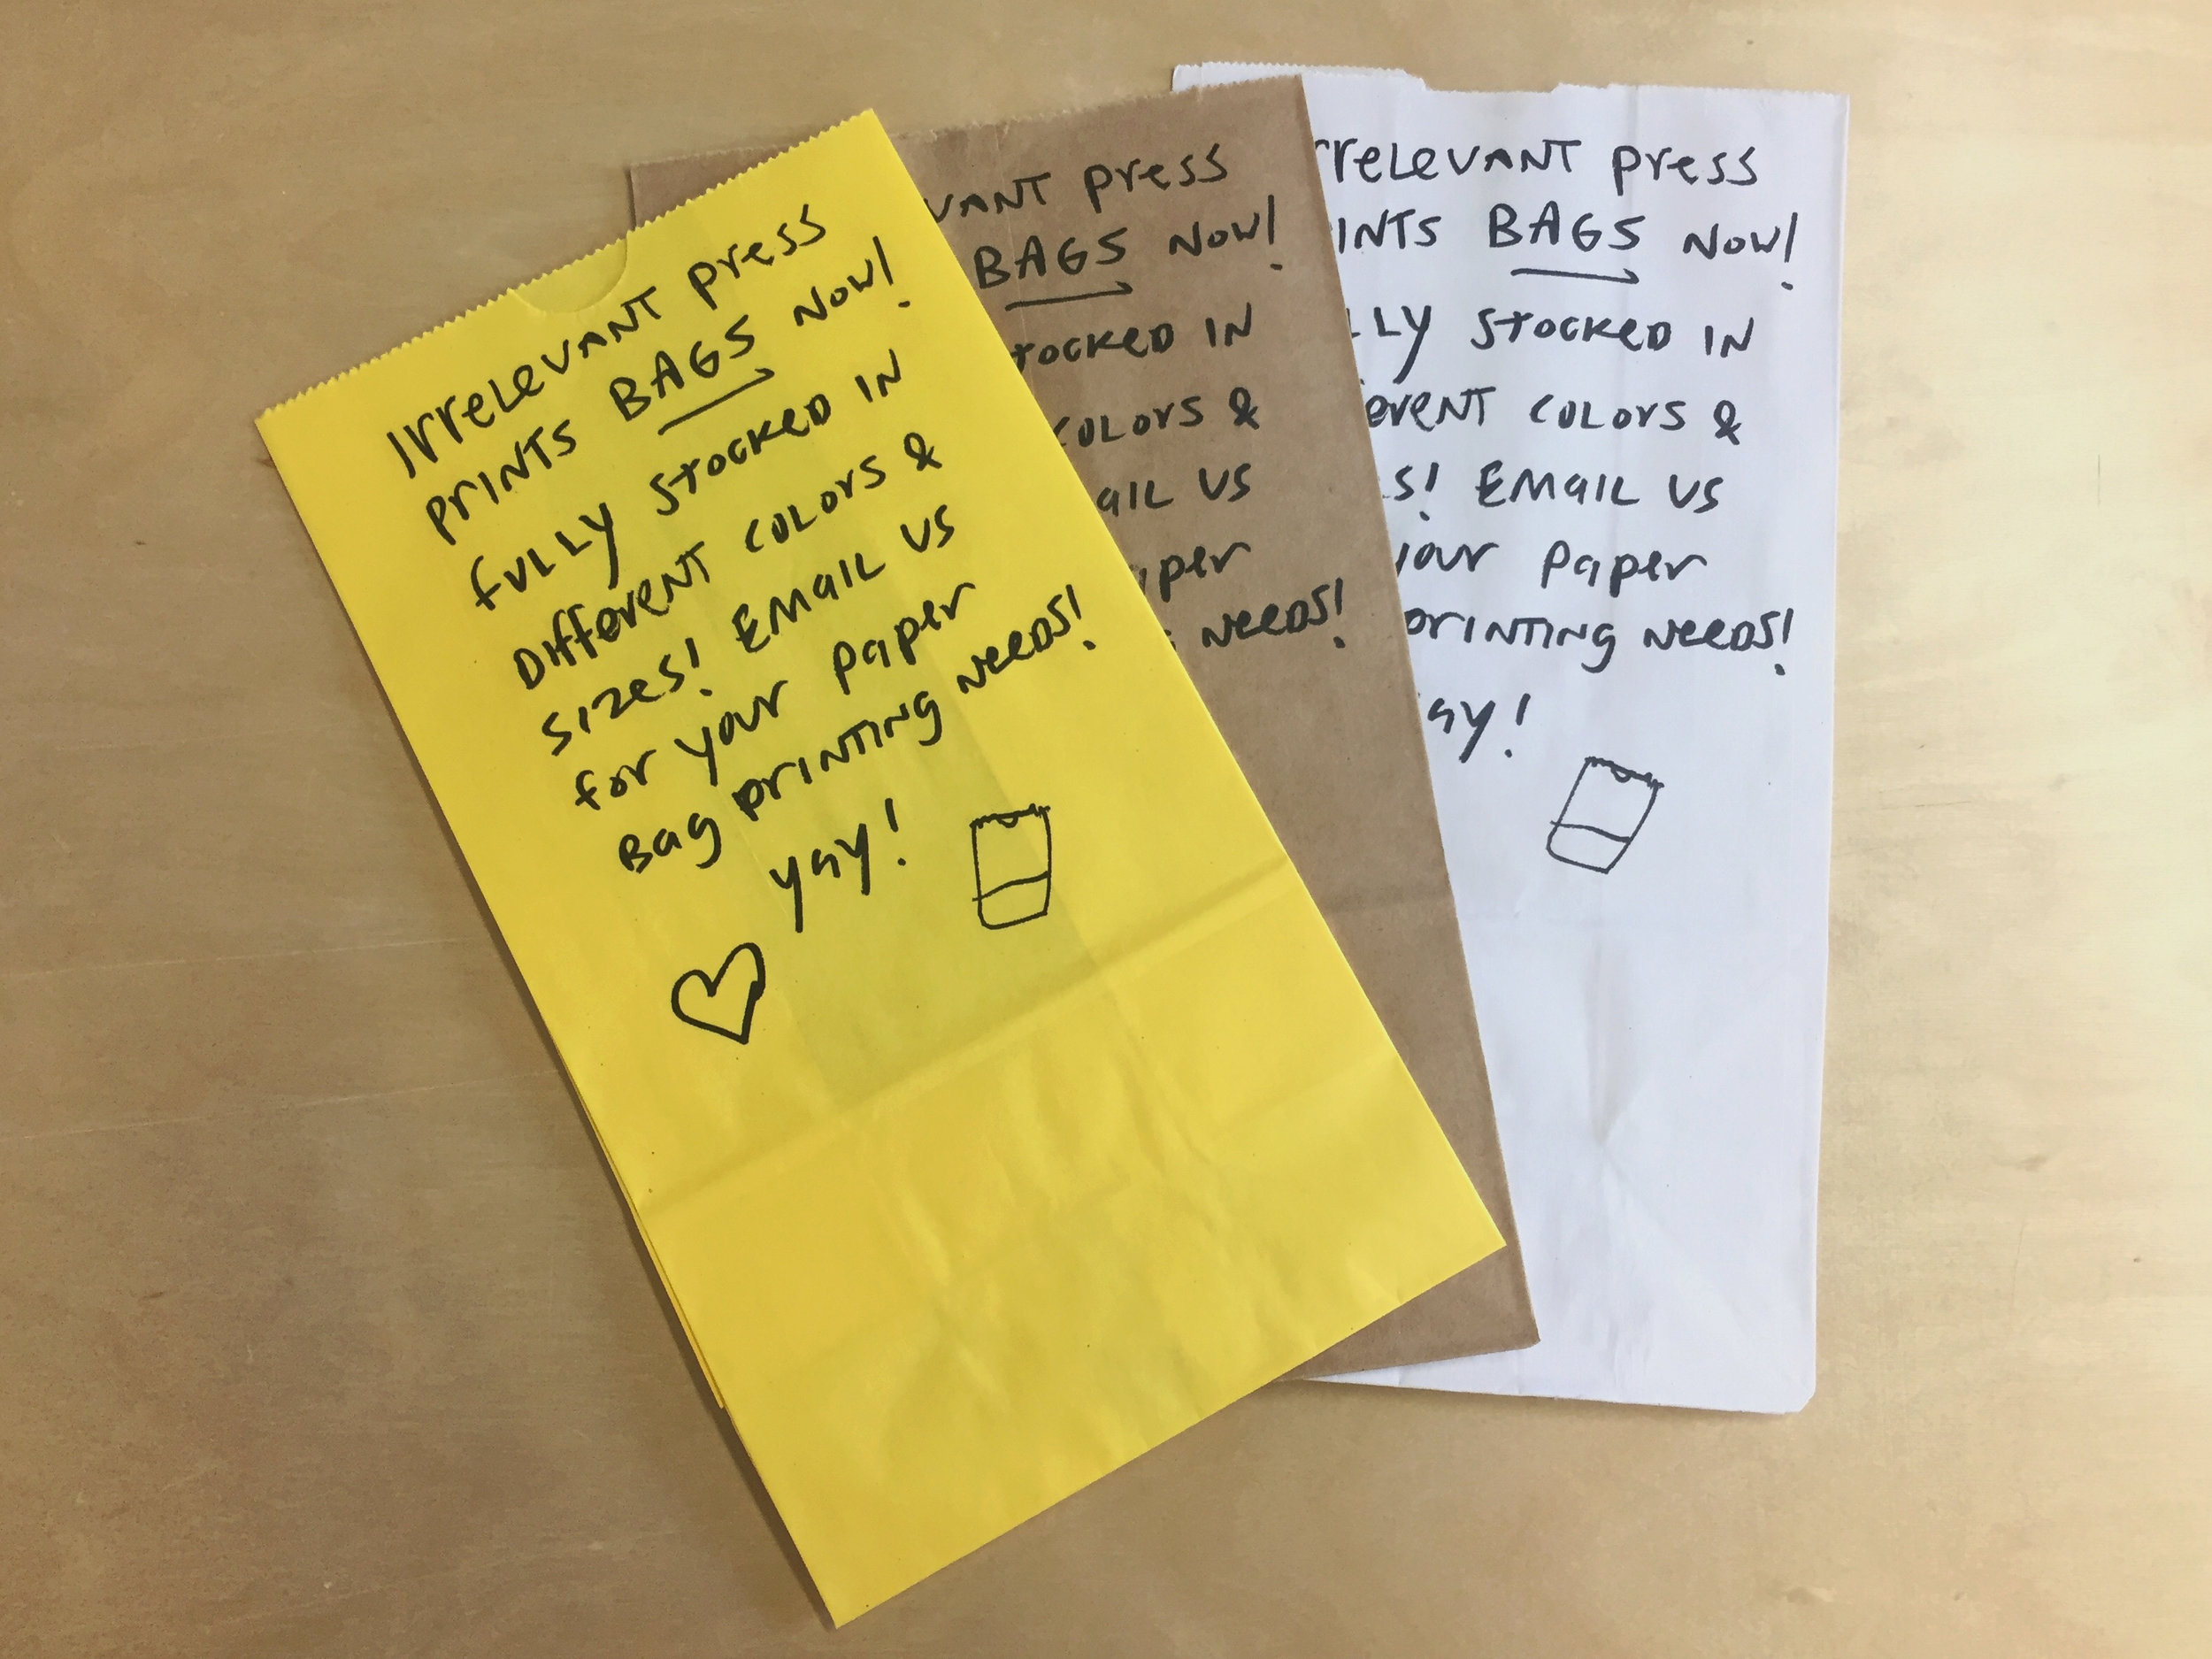 Irrelevant press
prints BAGS NOW!
fully stocked in
Different colors &
sizes! Email us
for your paper
Bag printing needs!
yay!
vant press
BAGS NOW!
tocked in
colors &
ail us
per
needs!
rrelevant press
ints BAGS NOW!
lly stocked in
erent colors &
s! Email us
your paper
printing needs!
ay!